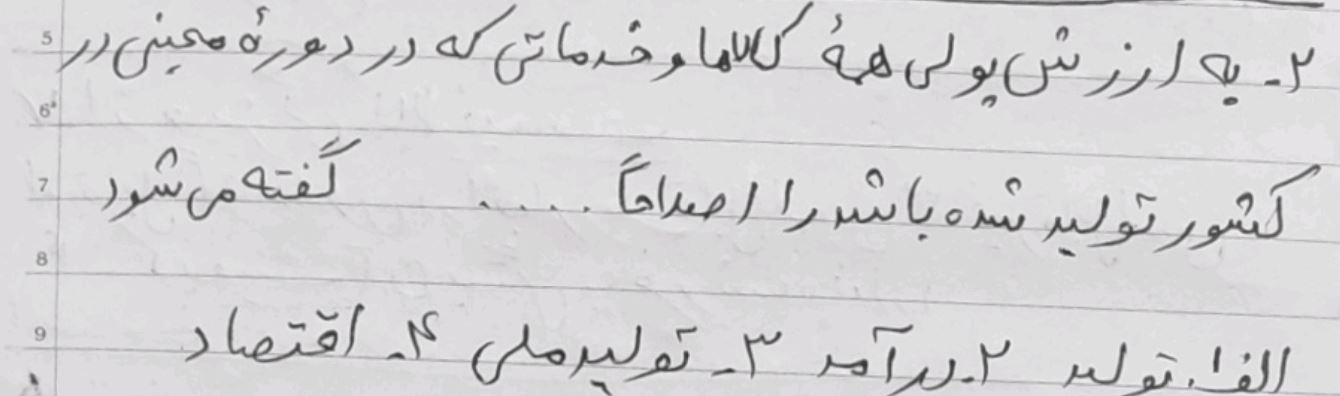 ۲- به ارزش پولی همهٔ کالاها و خدماتی که در دورهٔ معینی در
5
6
کشور تولید شده باشد را اصطلاحاً ..... گفته می شود
7
8
الف۱. تولید ۲. درآمد ۳- تولید ملی ۴. اقتصاد
9